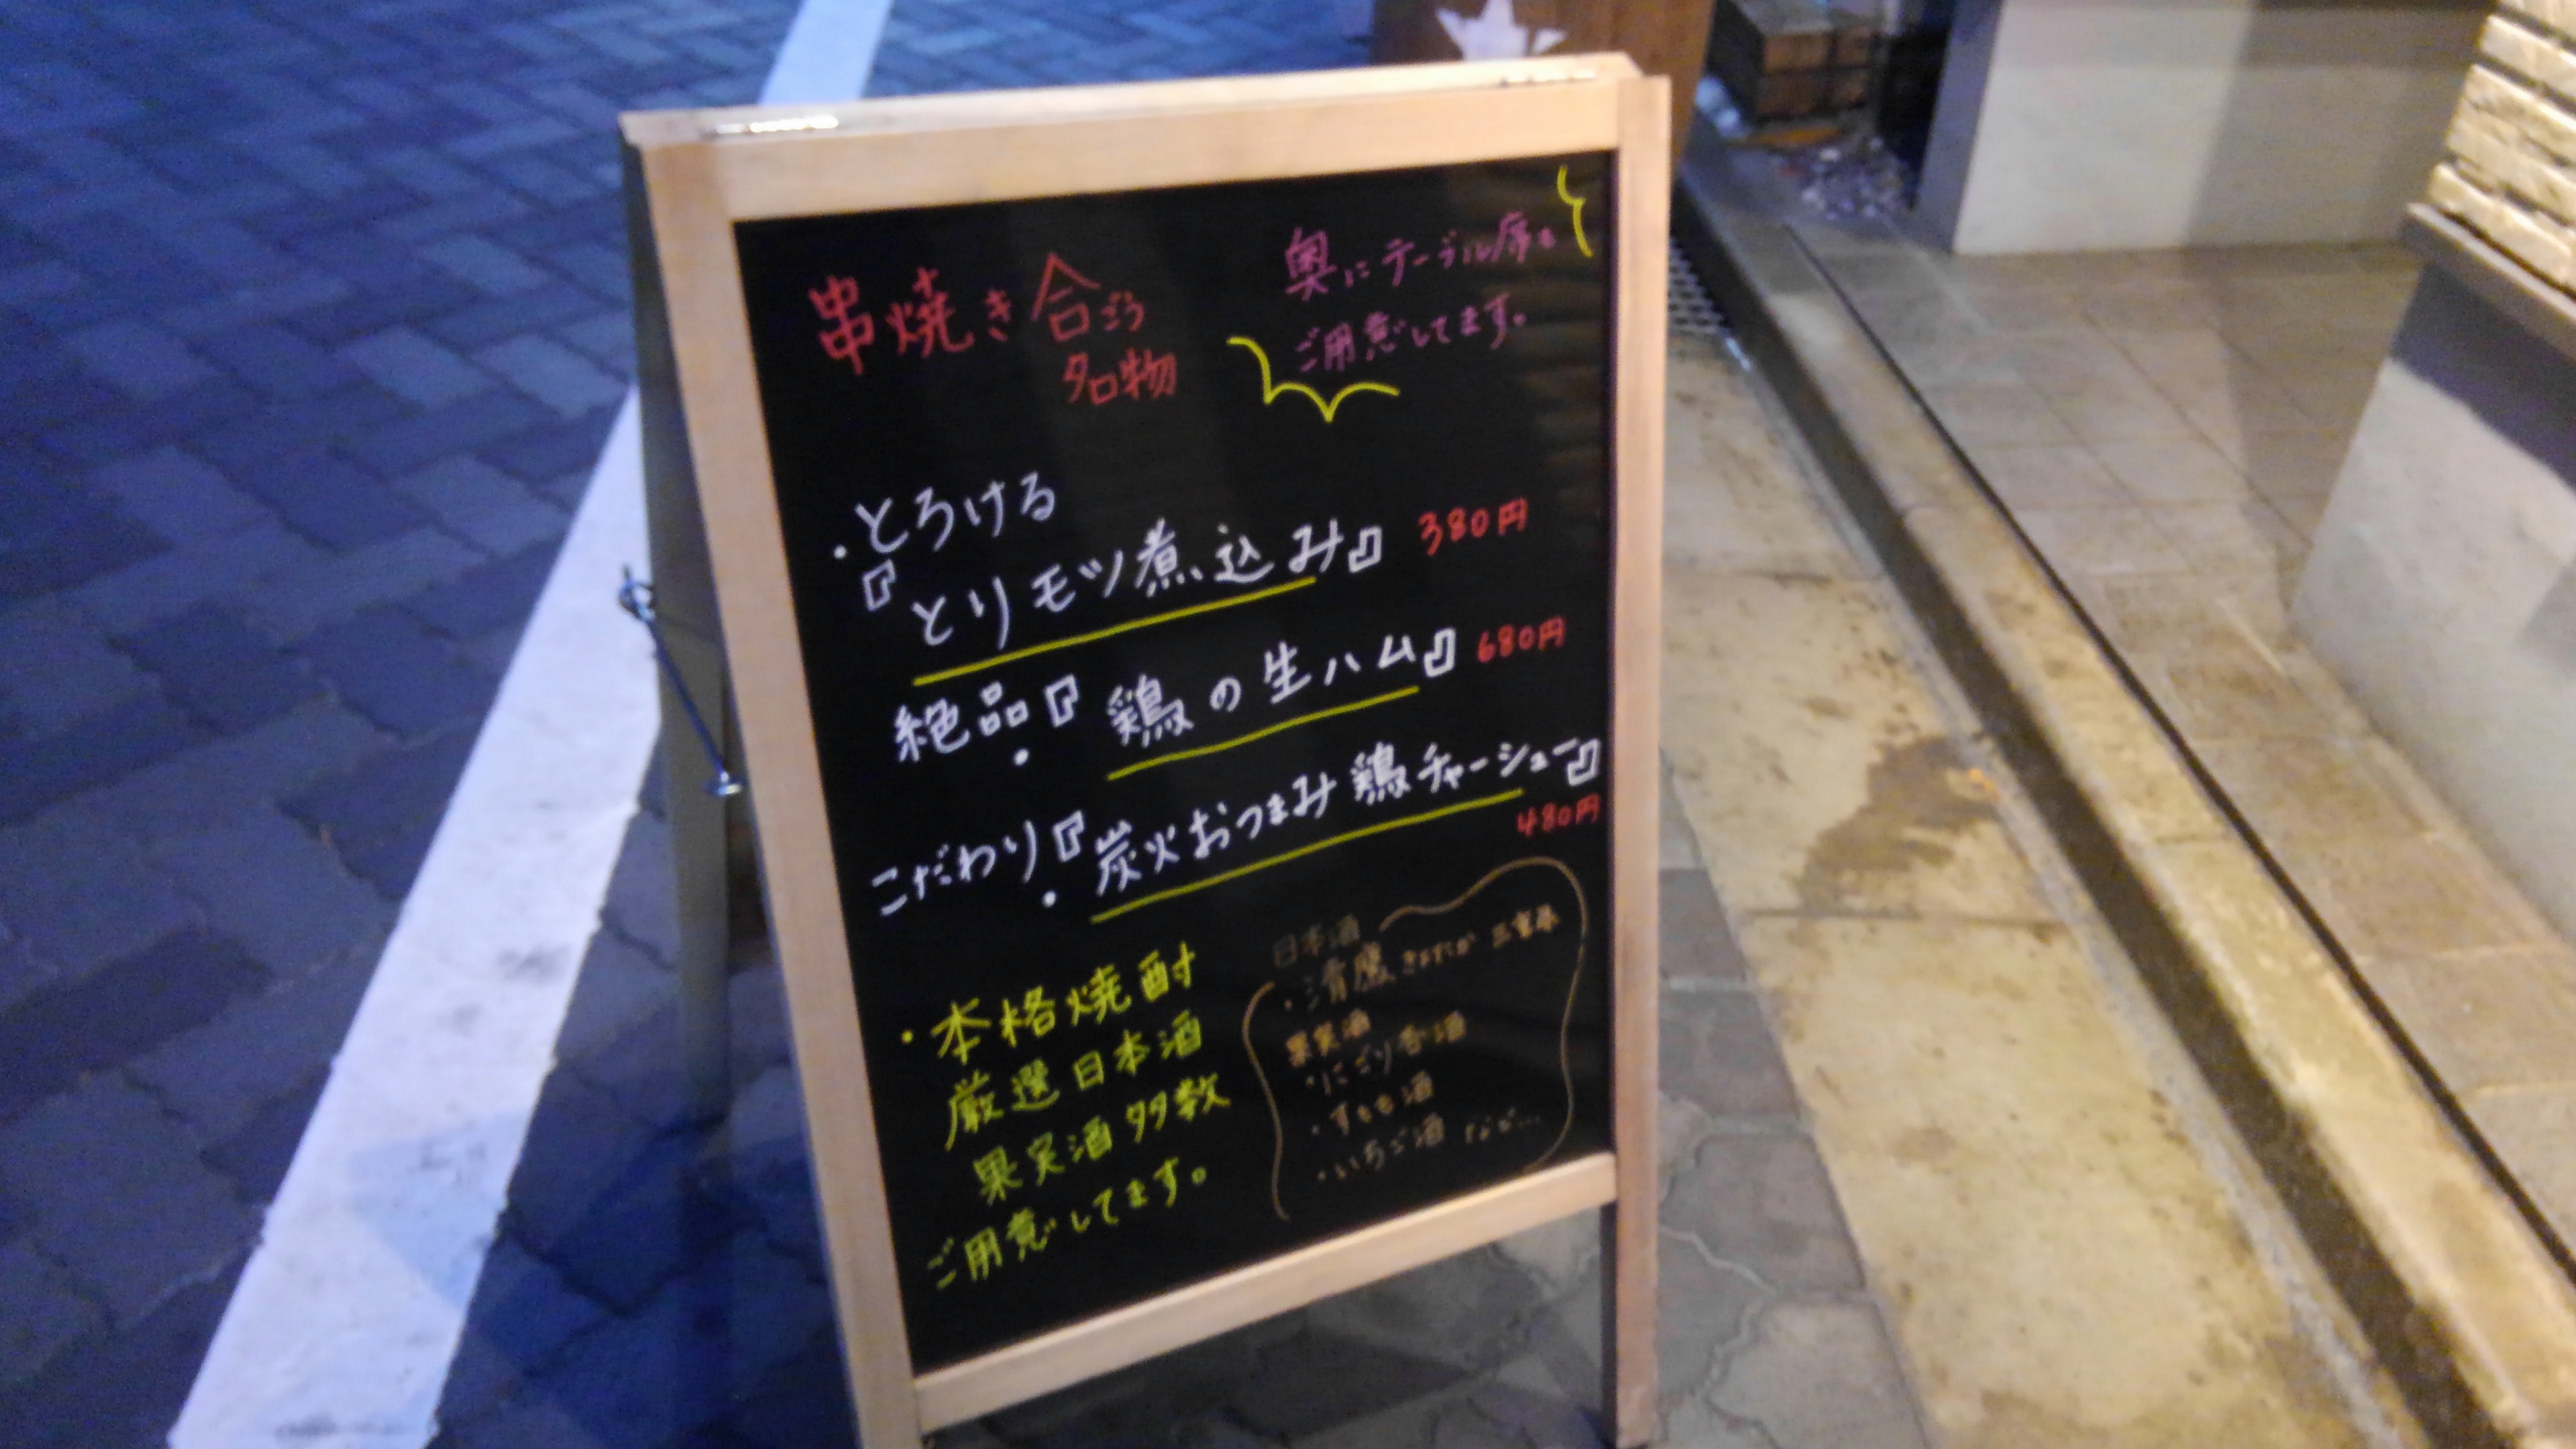 串焼き 合ごう
名物
奥にテーブル席も
ご用意してます。
・とろける
『とりモツ煮込み』 380円
絶品・『鶏の生ハム』 680円
こだわり・『炭火おつまみ鶏チャーシュー』
480円
・本格焼酎
厳選日本酒
果実酒多数
ご用意してます。
日本酒
・清鷹 きよたか 三重県
果実酒
・にごり杏酒
・すもも酒
・いちご酒 など…